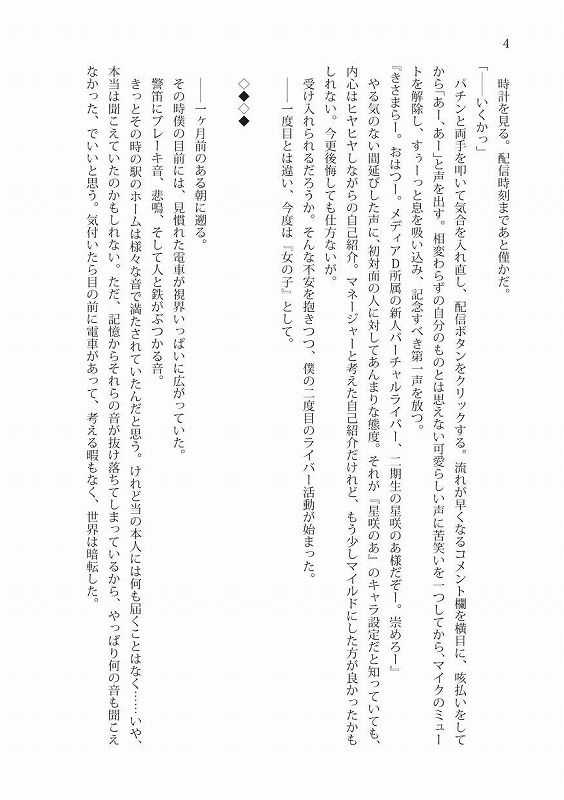 4
時計を見る。配信時刻まであと僅かだ。
「――いくかっ」
パチンと両手を叩いて気合を入れ直し、配信ボタンをクリックする。流れが早くなるコメント欄を横目に、咳払いをして
から「あー、あー」と声を出す。相変わらずの自分のものとは思えない可愛らしい声に苦笑いを一つしてから、マイクのミュー
トを解除し、すぅーっと息を吸い込み、記念すべき第一声を放つ。
『きさまらー。おはつー。メディアD所属の新人バーチャルライバー、二期生の星咲のあ様だぞー。崇めろー』
やる気のない間延びした声に、初対面の人に対してあんまりな態度。それが『星咲のあ』のキャラ設定だと知っていても、
内心はヒヤヒヤしながらの自己紹介。マネージャーと考えた自己紹介だけれど、もう少しマイルドにした方が良かったかも
しれない。今更後悔しても仕方ないが。
受け入れられるだろうか。そんな不安を抱きつつ、僕の二度目のライバー活動が始まった。
――一度目とは違い、今度は『女の子』として。
◇◆◇◆
――一ヶ月前のある朝に遡る。
その時僕の目前には、見慣れた電車が視界いっぱいに広がっていた。
警笛にブレーキ音、悲鳴、そして人と鉄がぶつかる音。
きっとその時の駅のホームは様々な音で満たされていたんだと思う。けれど当の本人には何も届くことはなく……いや、
本当は聞こえていたのかもしれない。ただ、記憶からそれらの音が抜け落ちてしまっているから、やっぱり何の音も聞こえ
なかった、でいいと思う。気付いたら目の前に電車があって、考える暇もなく、世界は暗転した。